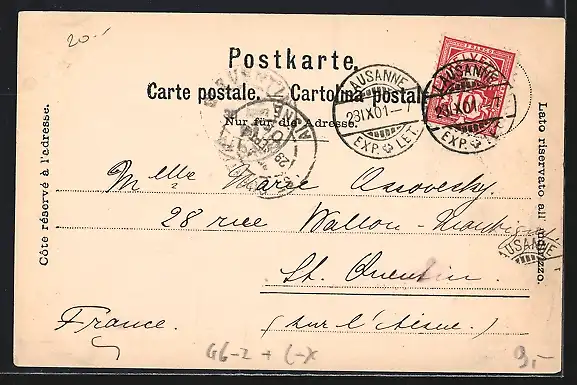 20.-
Postkarte.
Carte postale. Cartolina postale.
Nur für die Adresse.
Côte réservé à l'adresse.
Lato riservato all' indirizzo.
HELVETIA
FRANCO
LAUSANNE
23 IX 01 - 7
EXP. LET.
LAUSANNE
23 IX 01 - 7
EXP. LET.
Melle Marie Ossovesky.
28 rue Wallon-Montigny
St. Quentin.
LAUSANNE
France. (sur l'Aisne.)
G6-2 + (-x
9,-